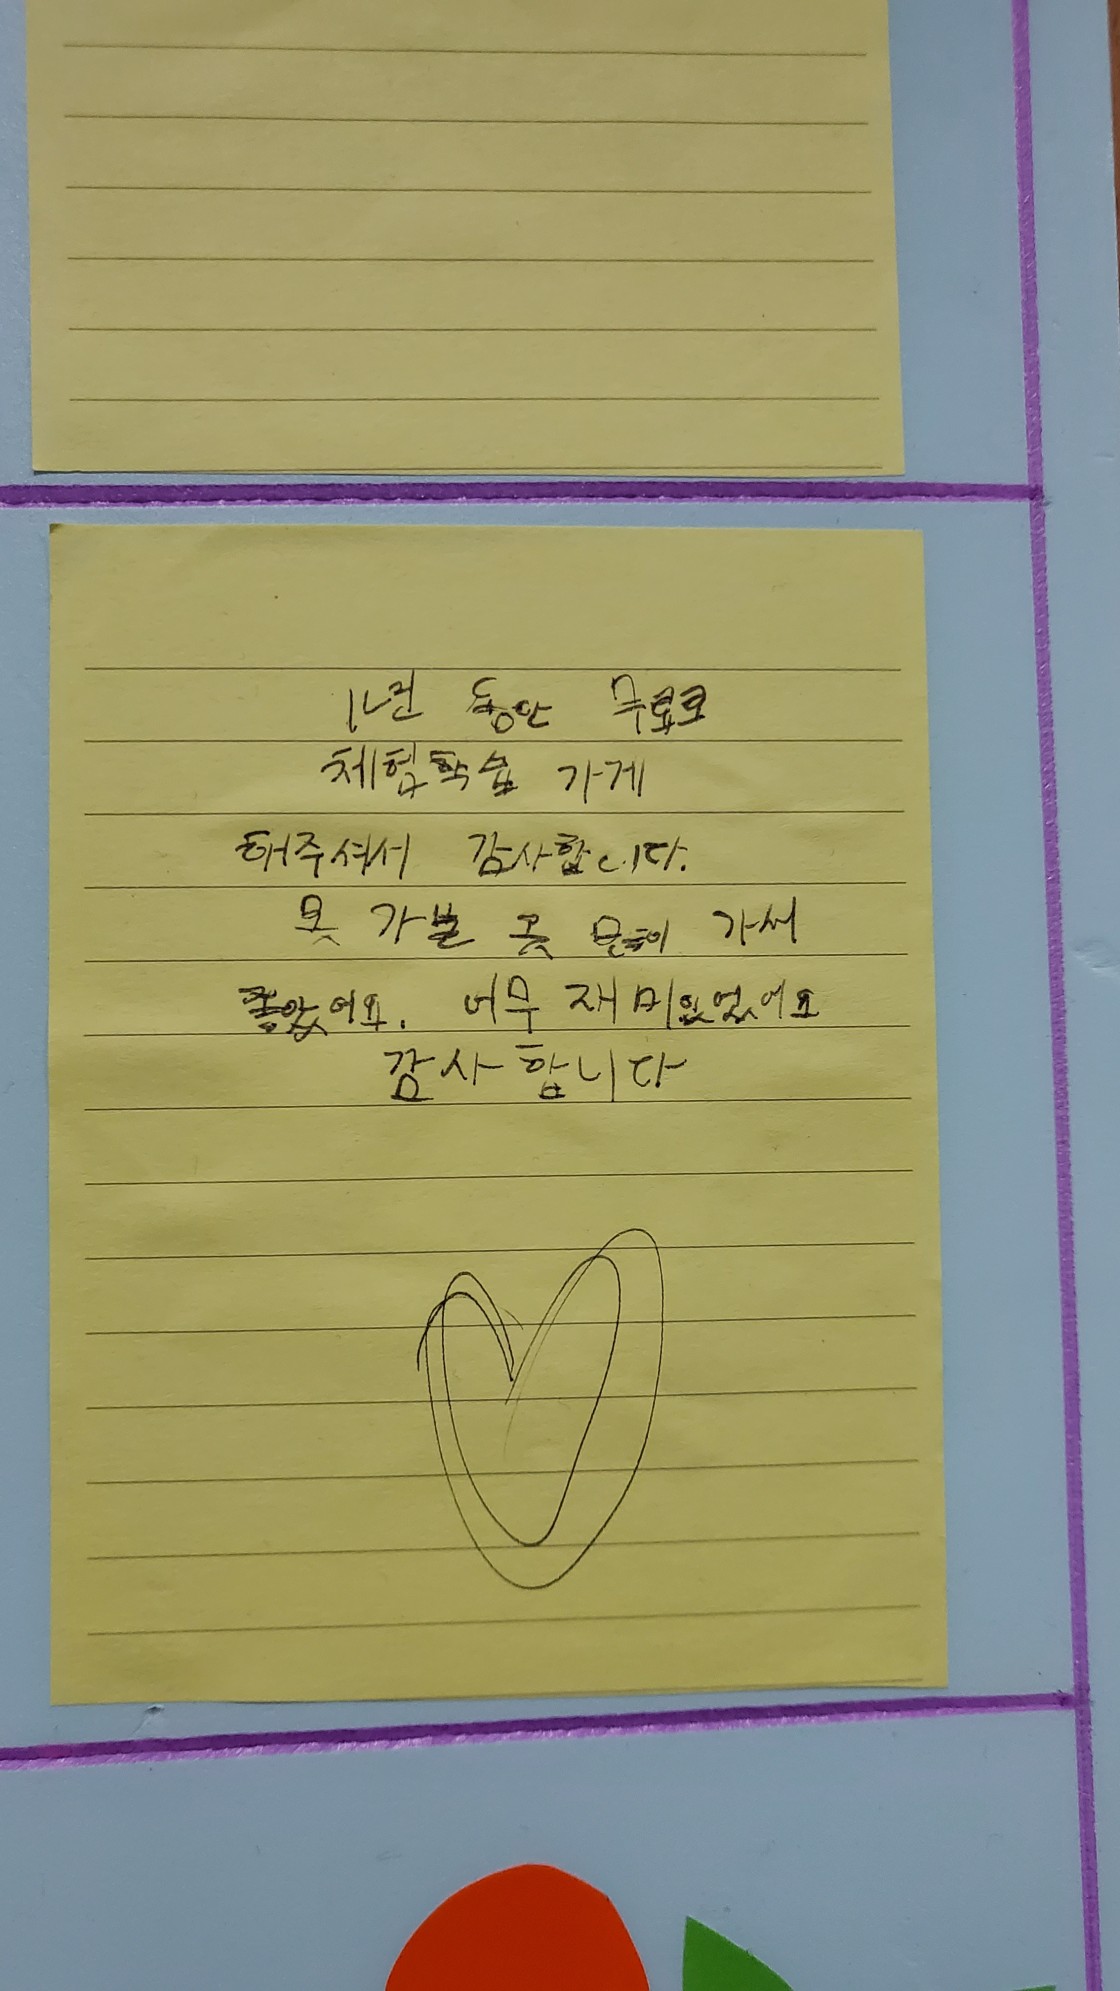 1년 동안 무료로
체험학습 가게
해주셔서 감사합니다.
못 가볼 곳 많이 가서
좋았어요. 너무 재미있었어요
감사합니다